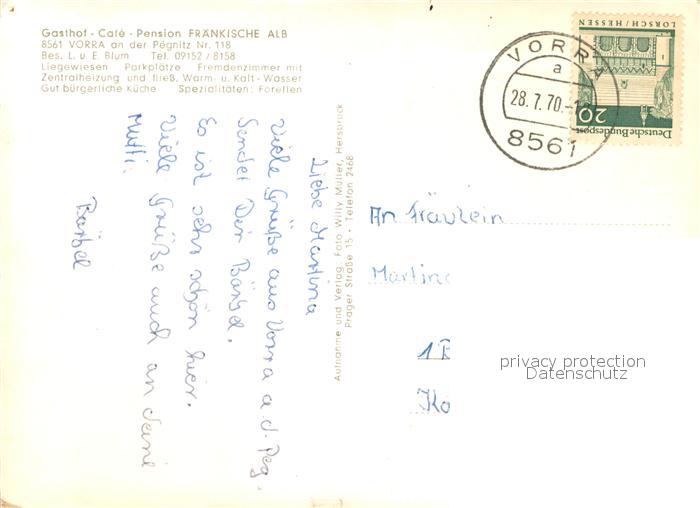 Gasthof - Café - Pension FRÄNKISCHE ALB
8561 VORRA an der Pegnitz Nr. 118
Bes. L. u. E. Blum Tel. 09152 / 8158
Liegewiesen Parkplätze Fremdenzimmer mit
Zentralheizung und fließ. Warm- u. Kalt-Wasser
Gut bürgerliche Küche Spezialitäten: Forellen
Liebe Martina
Viele Grüße aus Vorra a d. Peg.
Sendet Dir Bärbel.
Es ist sehr schön hier.
Viele Grüße auch an deine
Mutti.
Bärbel
Aufnahme und Verlag: Foto Willy Müller, Hersbruck
Prager Straße 15 · Telefon 2468
VORRA
a
28.7.70.-1
8561
LORSCH/HESSEN
20
Deutsche Bundespost
An Fräulein
Martina
1
Ko
privacy protection
Datenschutz